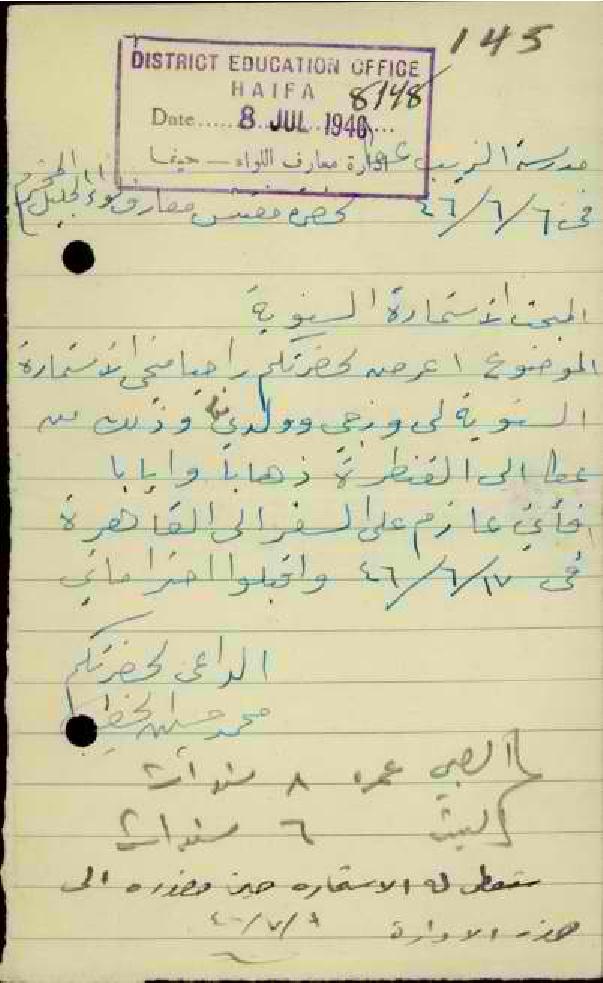 145
DISTRICT EDUCATION OFFICE
HAIFA
8148
Date..... 8 JUL 1946 ...
ادارة معارف اللواء – حيفا
مدرسة الزيب
في ٦/٦/٤٦ لحضرة مفتش معارف لواء الجليل المحترم
المبحث الاستمارة السنوية
الموضوع اعرض لحضرتكم راجيا منحي الاستمارة
السنوية لي وزوجي وولدي وذلك من
عكا الى القنطرة ذهابا وايابا
فأني عازم على السفر الى القاهرة
في ١٧/٦/٤٦ واقبلوا احترامي
الداعي لحضرتكم
محمد الخطيب
الصبي عمره ٨ سنوات
البنت ٦ سنوات
ستعطى له الاستماره حين حضوره الى
هذه الادارة